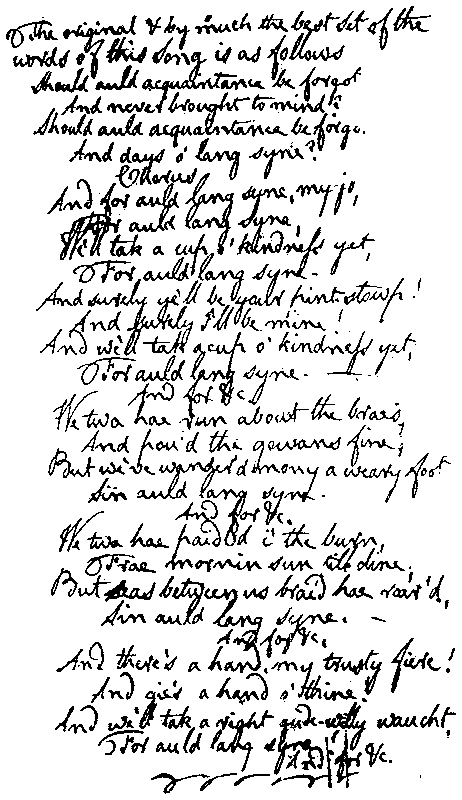 The original & by much the best set of the
words of this song is as follows
Should auld acquaintance be forgot
And never brought to mind?
Should auld acquaintance be forgo.
And days o' lang syne?
Chorus
And for auld lang syne, my jo,
For auld lang syne,
We'll tak a cup o' kindness yet,
For auld lang syne.
And surely ye'll be your pint-stowp!
And surely I'll be mine!
And we'll tak a cup o' kindness yet,
For auld lang syne. —
And for &c
We twa hae run about the braes,
And pou'd the gowans fine;
But we've wander'd mony a weary foot
Sin auld lang syne.
And for &c.
We twa hae paidl'd i' the burn,
Frae mornin sun till dine;
But seas between us braid hae roar'd,
Sin auld lang syne. —
And for &c.
And there's a hand, my trusty fiere!
And gie's a hand o' thine!
And we'll tak a right gude-willy waucht,
For auld lang syne
And for &c.